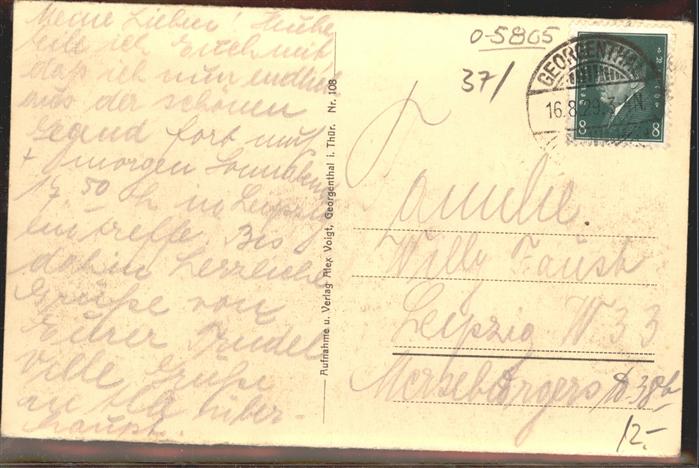 Meine Lieben! Heute
teile ich Euch mit
daß ich nun endlich
aus der schönen
Gegend fort muß
+ morgen Sonnabend
17 50 h in Leipzig
eintreffe. Bis
dahin herzliche
Grüße von
Eurer Trudel
Viele Grüße
an alle über-
haupt.
Aufnahme u. Verlag Alex Voigt, Georgenthal i. Thür. Nr. 108
0-5805
37/
GEORGENTHAL
16.8.29.
8 8
Familie.
Willy Faust
Leipzig W 33
Merseburgerstr. 38b
12.-